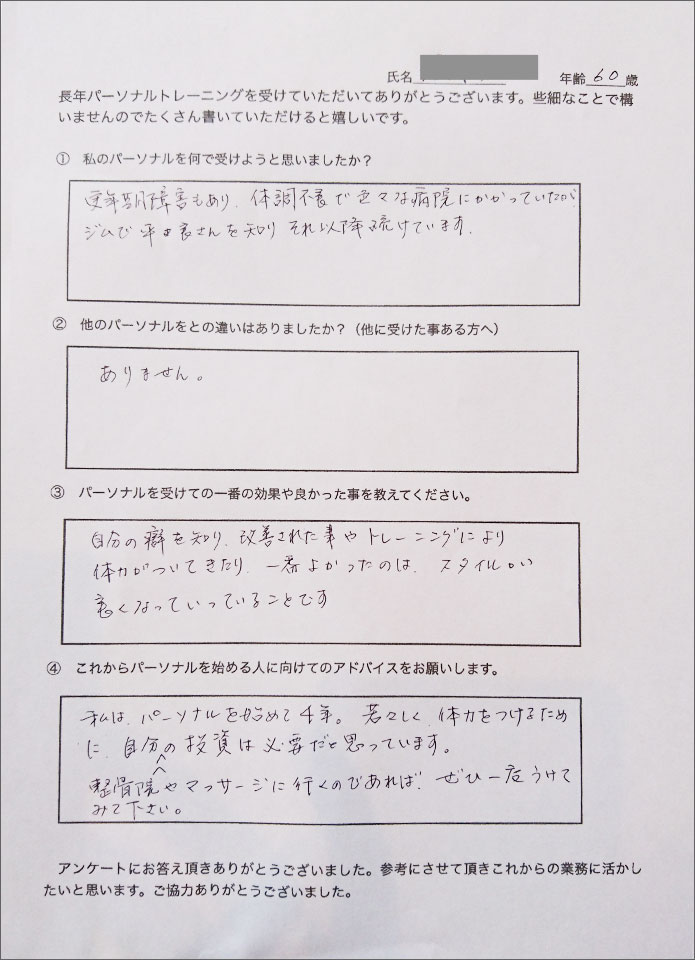 氏名 年齢 60 歳
長年パーソナルトレーニングを受けていただいてありがとうございます。些細なことで構
いませんのでたくさん書いていただけると嬉しいです。
① 私のパーソナルを何で受けようと思いましたか？
更年期障害もあり、体調不良で色々な病院にかかっていたが、
ジムで さんを知りそれ以降続けています。
② 他のパーソナルをとの違いはありましたか？（他に受けた事ある方へ）
ありません。
③ パーソナルを受けての一番の効果や良かった事を教えてください。
自分の癖を知り、改善された事やトレーニングにより
体力がついてきたり、一番よかったのは、スタイルが
良くなっていっていることです
④ これからパーソナルを始める人に向けてのアドバイスをお願いします。
私は、パーソナルを始めて4年。若々しく、体力をつけるため
に、自分への投資は必要だと思っています。
整骨院やマッサージに行くのであれば、ぜひ一度うけて
みて下さい。
アンケートにお答え頂きありがとうございました。参考にさせて頂きこれからの業務に活かし
たいと思います。ご協力ありがとうございました。